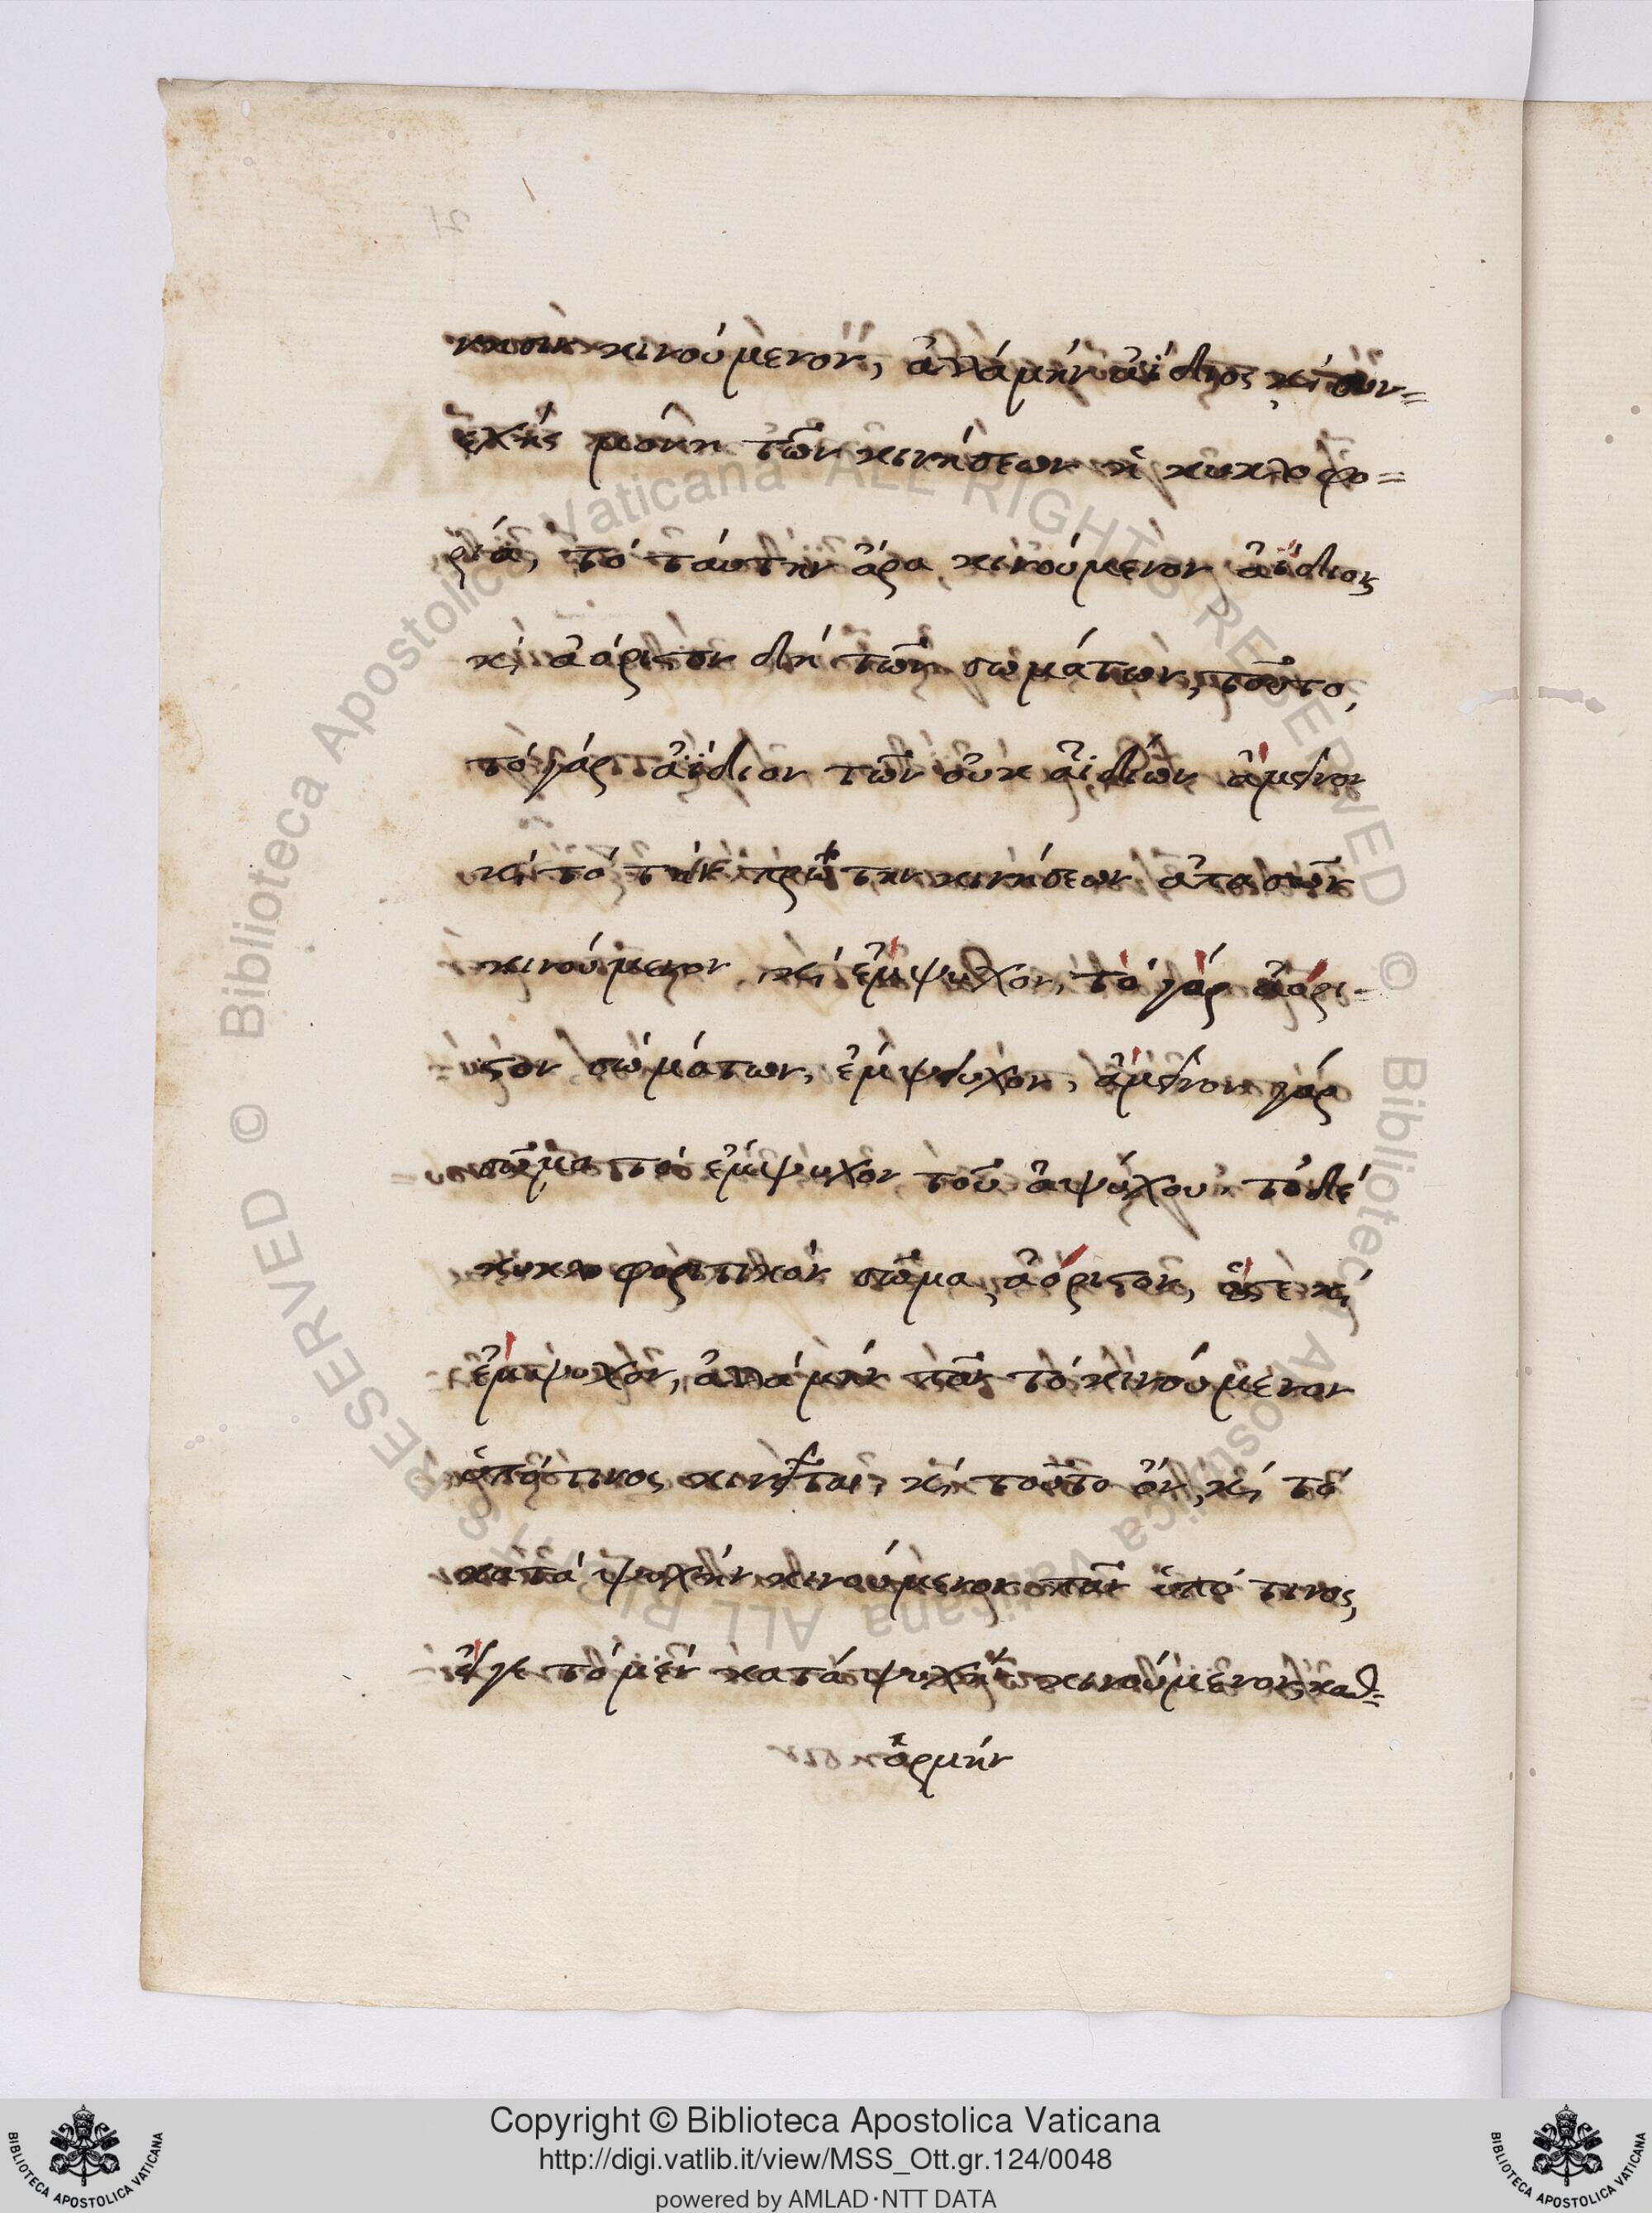 νησιν κινούμενον, ἀλλάμήν ἀΐδιος κ̀ συν=
εχής μονη τῶν κινήσεων ἡ κυκλοφο=
ρία, τό ταύτην ἄρα κινούμενον ἀΐδιον
κ̀ ἀάριστον δή τῶν σωμάτων, τοῦτο,
τό γάρ ἀΐδιον τῶν οὐκ ἀϊδίων ἄμεινον
κ̀ τό τήν πρώτην κινήσεων ἁπασῶν
κινούμενον κ̀ ἔμψυχον, τό γάρ ἀόρι=
στον σωμάτων, ἐμψυχον, ἄμεινον γάρ
σῶμα τό ἔμψυχον τοῦ ἀψύχου, τό δέ
κυκλοφοριτικόν σῶμα, ἀόριστον, ὥστε κ̀
ἔμψυχον, ἀλλάμήν πᾶν τό κινούμενον
ὑπό τινος κινεῖται, κ̀ τοῦτο ὄν, κ̀ τό
κατά ψυχήν κινούμενον πᾶν ὑπό τινος,
εἴγε τό μέν κατά ψυχήν κινούμενον καθ=
ὁρμήν
Copyright © Biblioteca Apostolica Vaticana
http://digi.vatlib.it/view/MSS_Ott.gr.124/0048
powered by AMLAD·NTT DATA
BIBLIOTECA APOSTOLICA VATICANA
BIBLIOTECA APOSTOLICA VATICANA
© Biblioteca Apostolica Vaticana ALL RIGHTS RESERVED
© Biblioteca Apostolica Vaticana ALL RIGHTS RESERVED